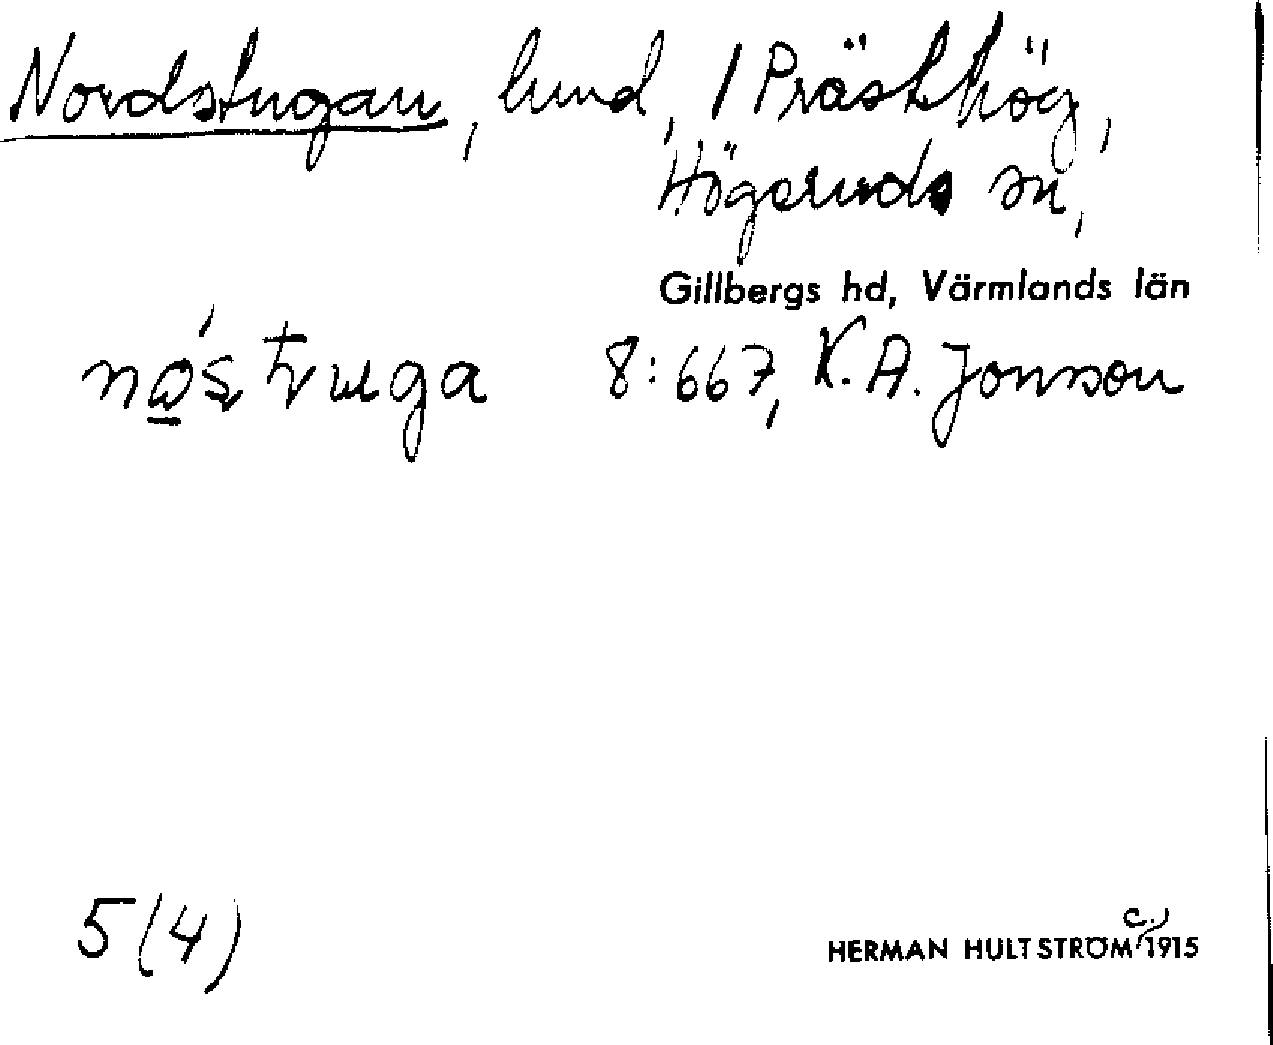 Nordstugan, lund, / Prästhög,
Högeruds sn,
Gillbergs hd, Värmlands län
8:667, K. A. Jonsson
5(4)
HERMAN HULTSTRÖM c. 1915